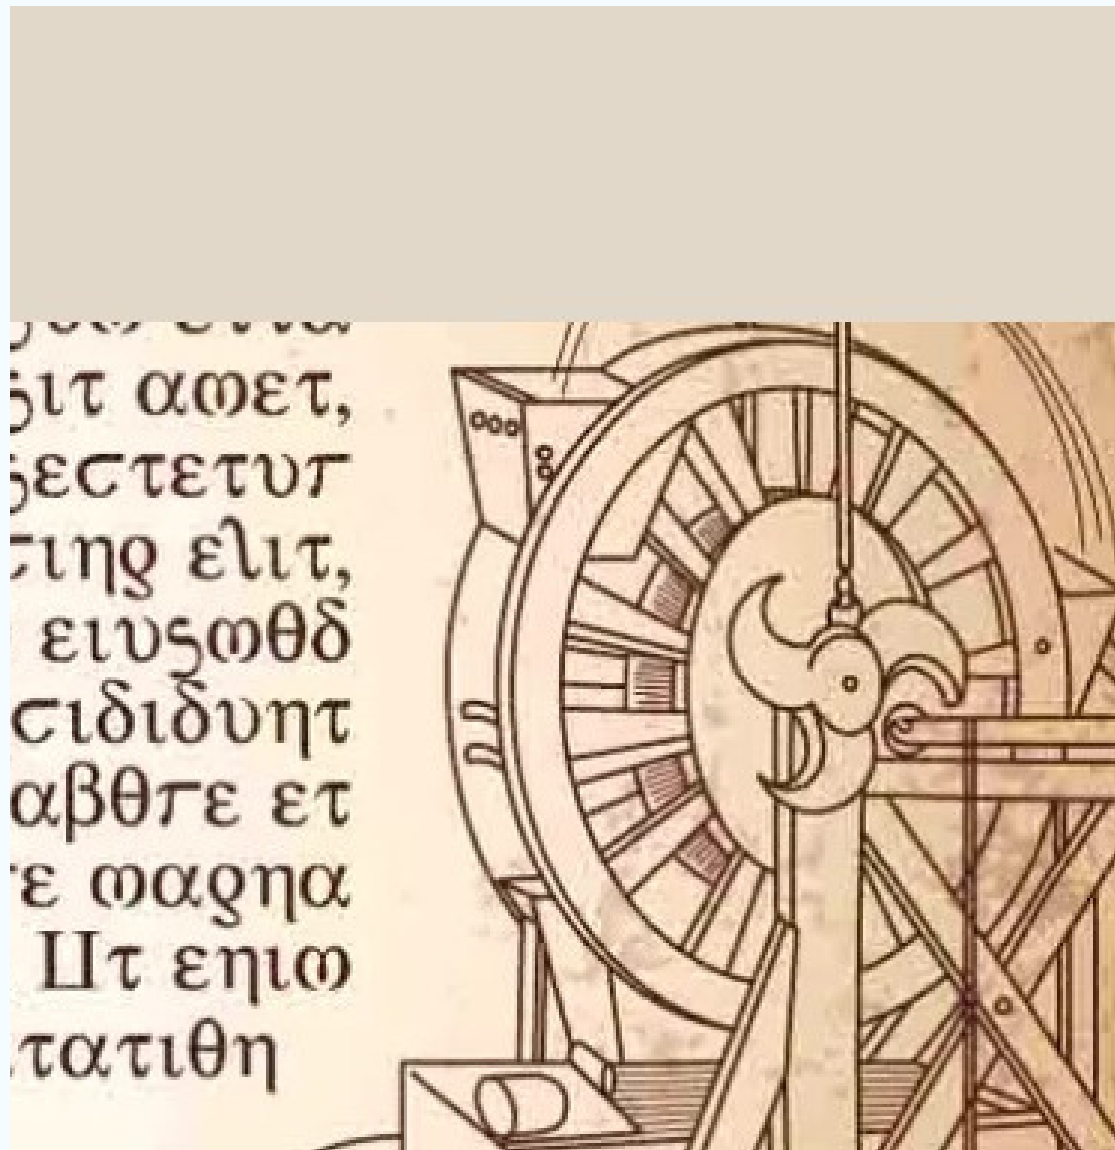 ςιτ αωετ,
ςεϲτετυг
ϲιηϱ ελιτ,
ειυςωθδ
ϲιδιδυητ
αβθгε ετ
ε ωαϱηα
∐τ εηιω
τατιθη